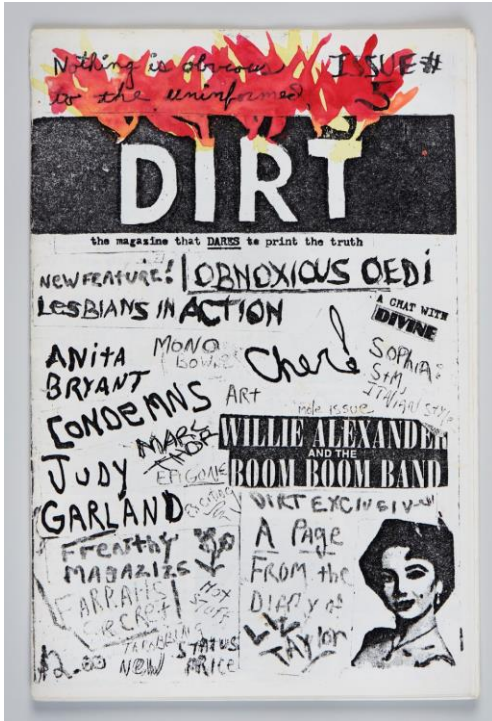 Nothing is obvious
to the uninformed
ISSUE #
5
DIRT
the magazine that DARES to print the truth
NEW FEATURE! OBNOXIOUS OEDI
LESBIANS IN ACTION
A CHAT WITH
DIVINE
ANITA
BRYANT
CONDEMNS
JUDY
GARLAND
MONO
Cher!
SOPHIA:
S+M
ITALIAN STYLE
ART
nude issue
WILLIE ALEXANDER
AND THE
BOOM BOOM BAND
EPIGONE
EXCITING
DIRT EXCLUSIVE
A PAGE
FROM the
DIARY of
LIZ
TAYLOR
FRENTHY
MAGAZIZS
FARRAHS
SECRET
HOT
STUFF
$2.00
NEW
STATUS
PRICE